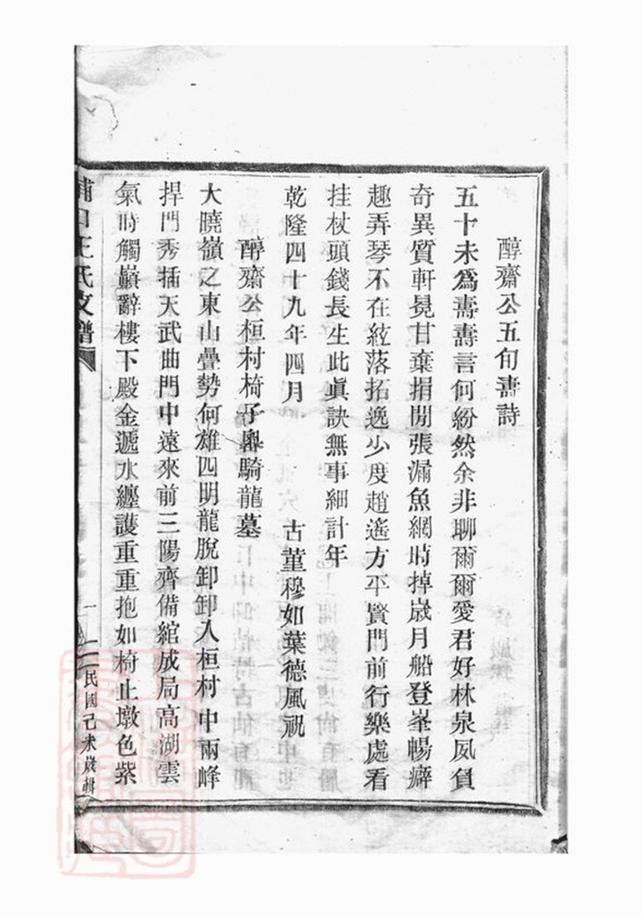 醇齋公五旬壽詩
五十未爲壽壽言何紛然余非聊爾爾愛君好林泉夙負
奇異質軒冕甘棄捐閒張漏魚網時掉歲月船登峯暢癖
趣弄琴不在絃落拓逸少度趙遙方平賢門前行樂處看
挂杖頭錢長生此眞訣無事細計年
乾隆四十九年四月 古董穆如葉德風祝
醇齋公桓村椅子
騎龍墓
大曉嶺之東山疊勢何雄四明龍脫卸卸入桓村中兩峰
捍門秀插天武曲門中遠來前三陽齊備綰成局高湖雲
氣時觸巔辭樓下殿金遞水纏護重重抱如椅止墩色紫
浦口王氏支譜
一
民國己未歲輯